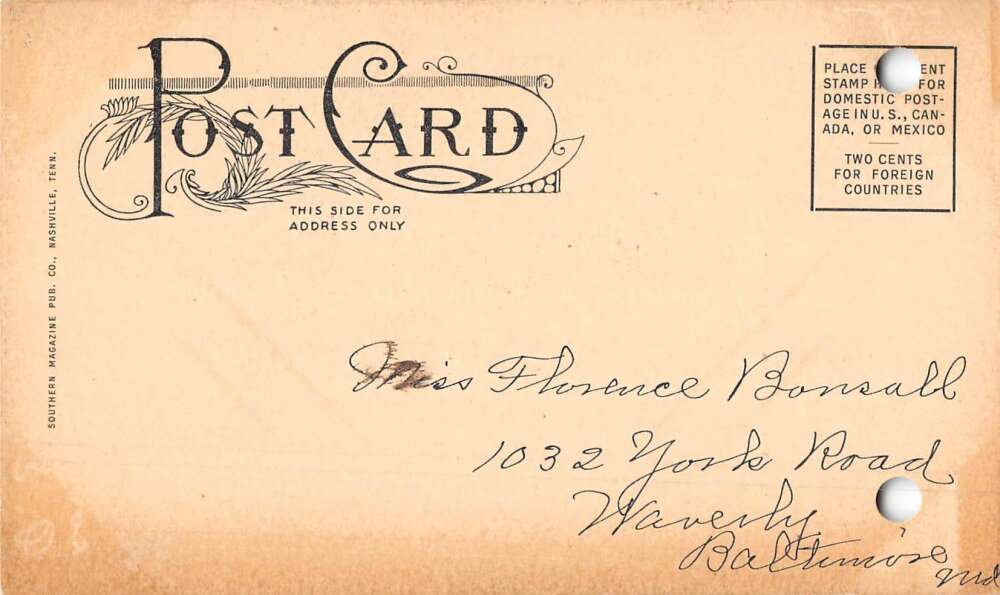 POST CARD
THIS SIDE FOR
ADDRESS ONLY
PLACE ENT
STAMP H FOR
DOMESTIC POST-
AGE IN U.S., CAN-
ADA, OR MEXICO
TWO CENTS
FOR FOREIGN
COUNTRIES
SOUTHERN MAGAZINE PUB. CO., NASHVILLE, TENN.
Miss Florence Bonsall
1032 York Road
Waverly
Baltimore
Md